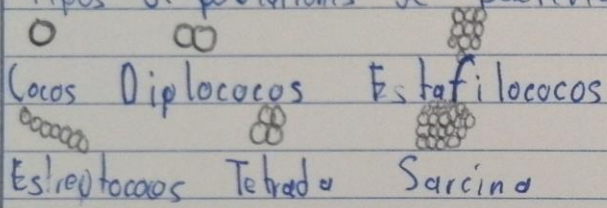 Cocos Diplococos Estafilococos
Estreptocacos Tetrada Sarcina